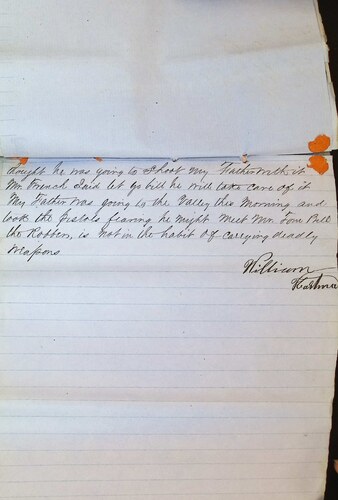 thought he was going to shoot my Father with it
Mr. French Said let go bill he will take care of it
My Father was going to the Valley this Morning and
took the Pistols fearing he might Meet Mr. Tone Bell
the Robber, is not in the habit of carrying deadly
Weapons
William